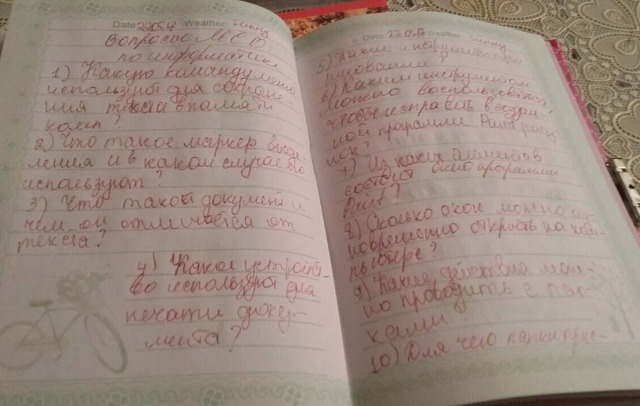 Date 22.05.17 Weather: sunny
Вопросы МСО
по информатике
1) Какую команду можно
использовать для сохране-
ния текста в памяти
комп?
2) Что такое маркер выде-
ления и в каком случае его
используют?
3) Что такое документ и
чем он отличается от
текста?
4) Какое устройст-
во используют для
печати доку-
мента?
Date 22.05.17 Weather: sunny
5) Какие инструменты
рисования?
6) Каким инструментом
можно воспользоваться,
чтобы исправить в создан-
ной программе Paint рису-
нок?
7) Из каких элементов
состоит окно программы
Paint?
8) Сколько окон можно од-
новременно открыть на ком-
пьютере?
9) Какие действия мож-
но проводить с пап-
ками
10) Для чего папки